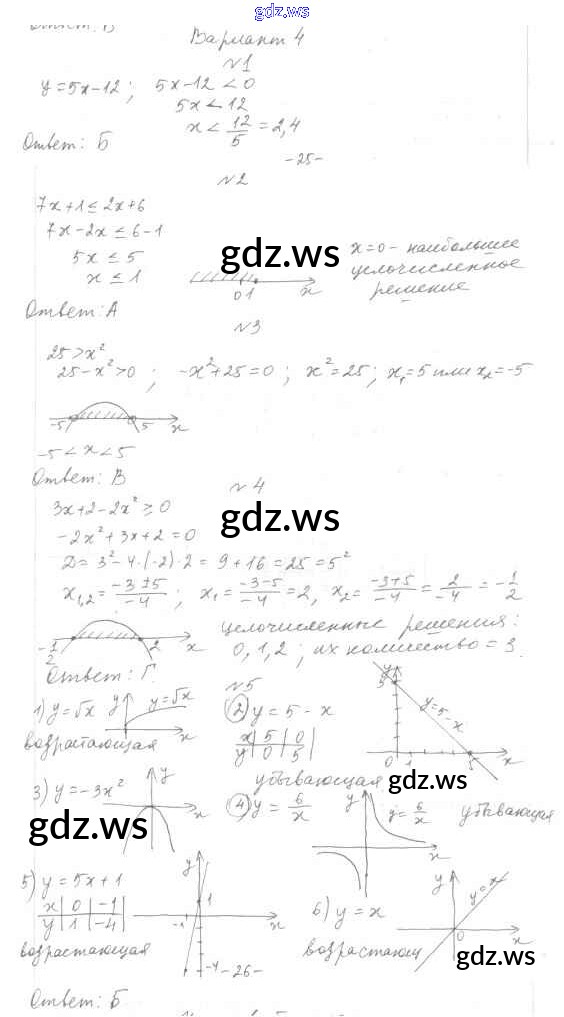 gdz.ws
Ответ: В
Вариант 4
№1
y = 5x - 12; 5x - 12 < 0
5x < 12
x < 12/5 = 2,4
Ответ: Б
-25-
№2
7x + 1 ≤ 2x + 6
7x - 2x ≤ 6 - 1
5x ≤ 5
x ≤ 1
0 1 x
x = 0 - наибольшее
целочисленное
решение
gdz.ws
Ответ: А
№3
25 > x²
25 - x² > 0; -x² + 25 = 0; x² = 25; x₁ = 5 или x₂ = -5
-5 5 x
-5 < x < 5
Ответ: В
№4
3x + 2 - 2x² ≥ 0
gdz.ws
-2x² + 3x + 2 = 0
D = 3² - 4·(-2)·2 = 9 + 16 = 25 = 5²
x₁,₂ = (-3 ± 5)/-4; x₁ = (-3-5)/-4 = 2, x₂ = (-3+5)/-4 = 2/-4 = -1/2
-1/2 2 x
целочисленные решения:
0, 1, 2; их количество = 3
Ответ: Г.
№5
1) y = √x y y = √x x
возрастающая
2) y = 5 - x
x | 5 | 0 |
y | 0 | 5 |
убывающая
y 5 y = 5 - x 0 1 5 x
gdz.ws
3) y = -3x² y x
gdz.ws
4) y = 6/x y y = 6/x x убывающая
5) y = 5x + 1
x | 0 | -1
y | 1 | -4
возрастающая
y 1 -1 x -4
-26-
6) y = x y y = x 0 x
возрастающ
gdz.ws
Ответ: Б